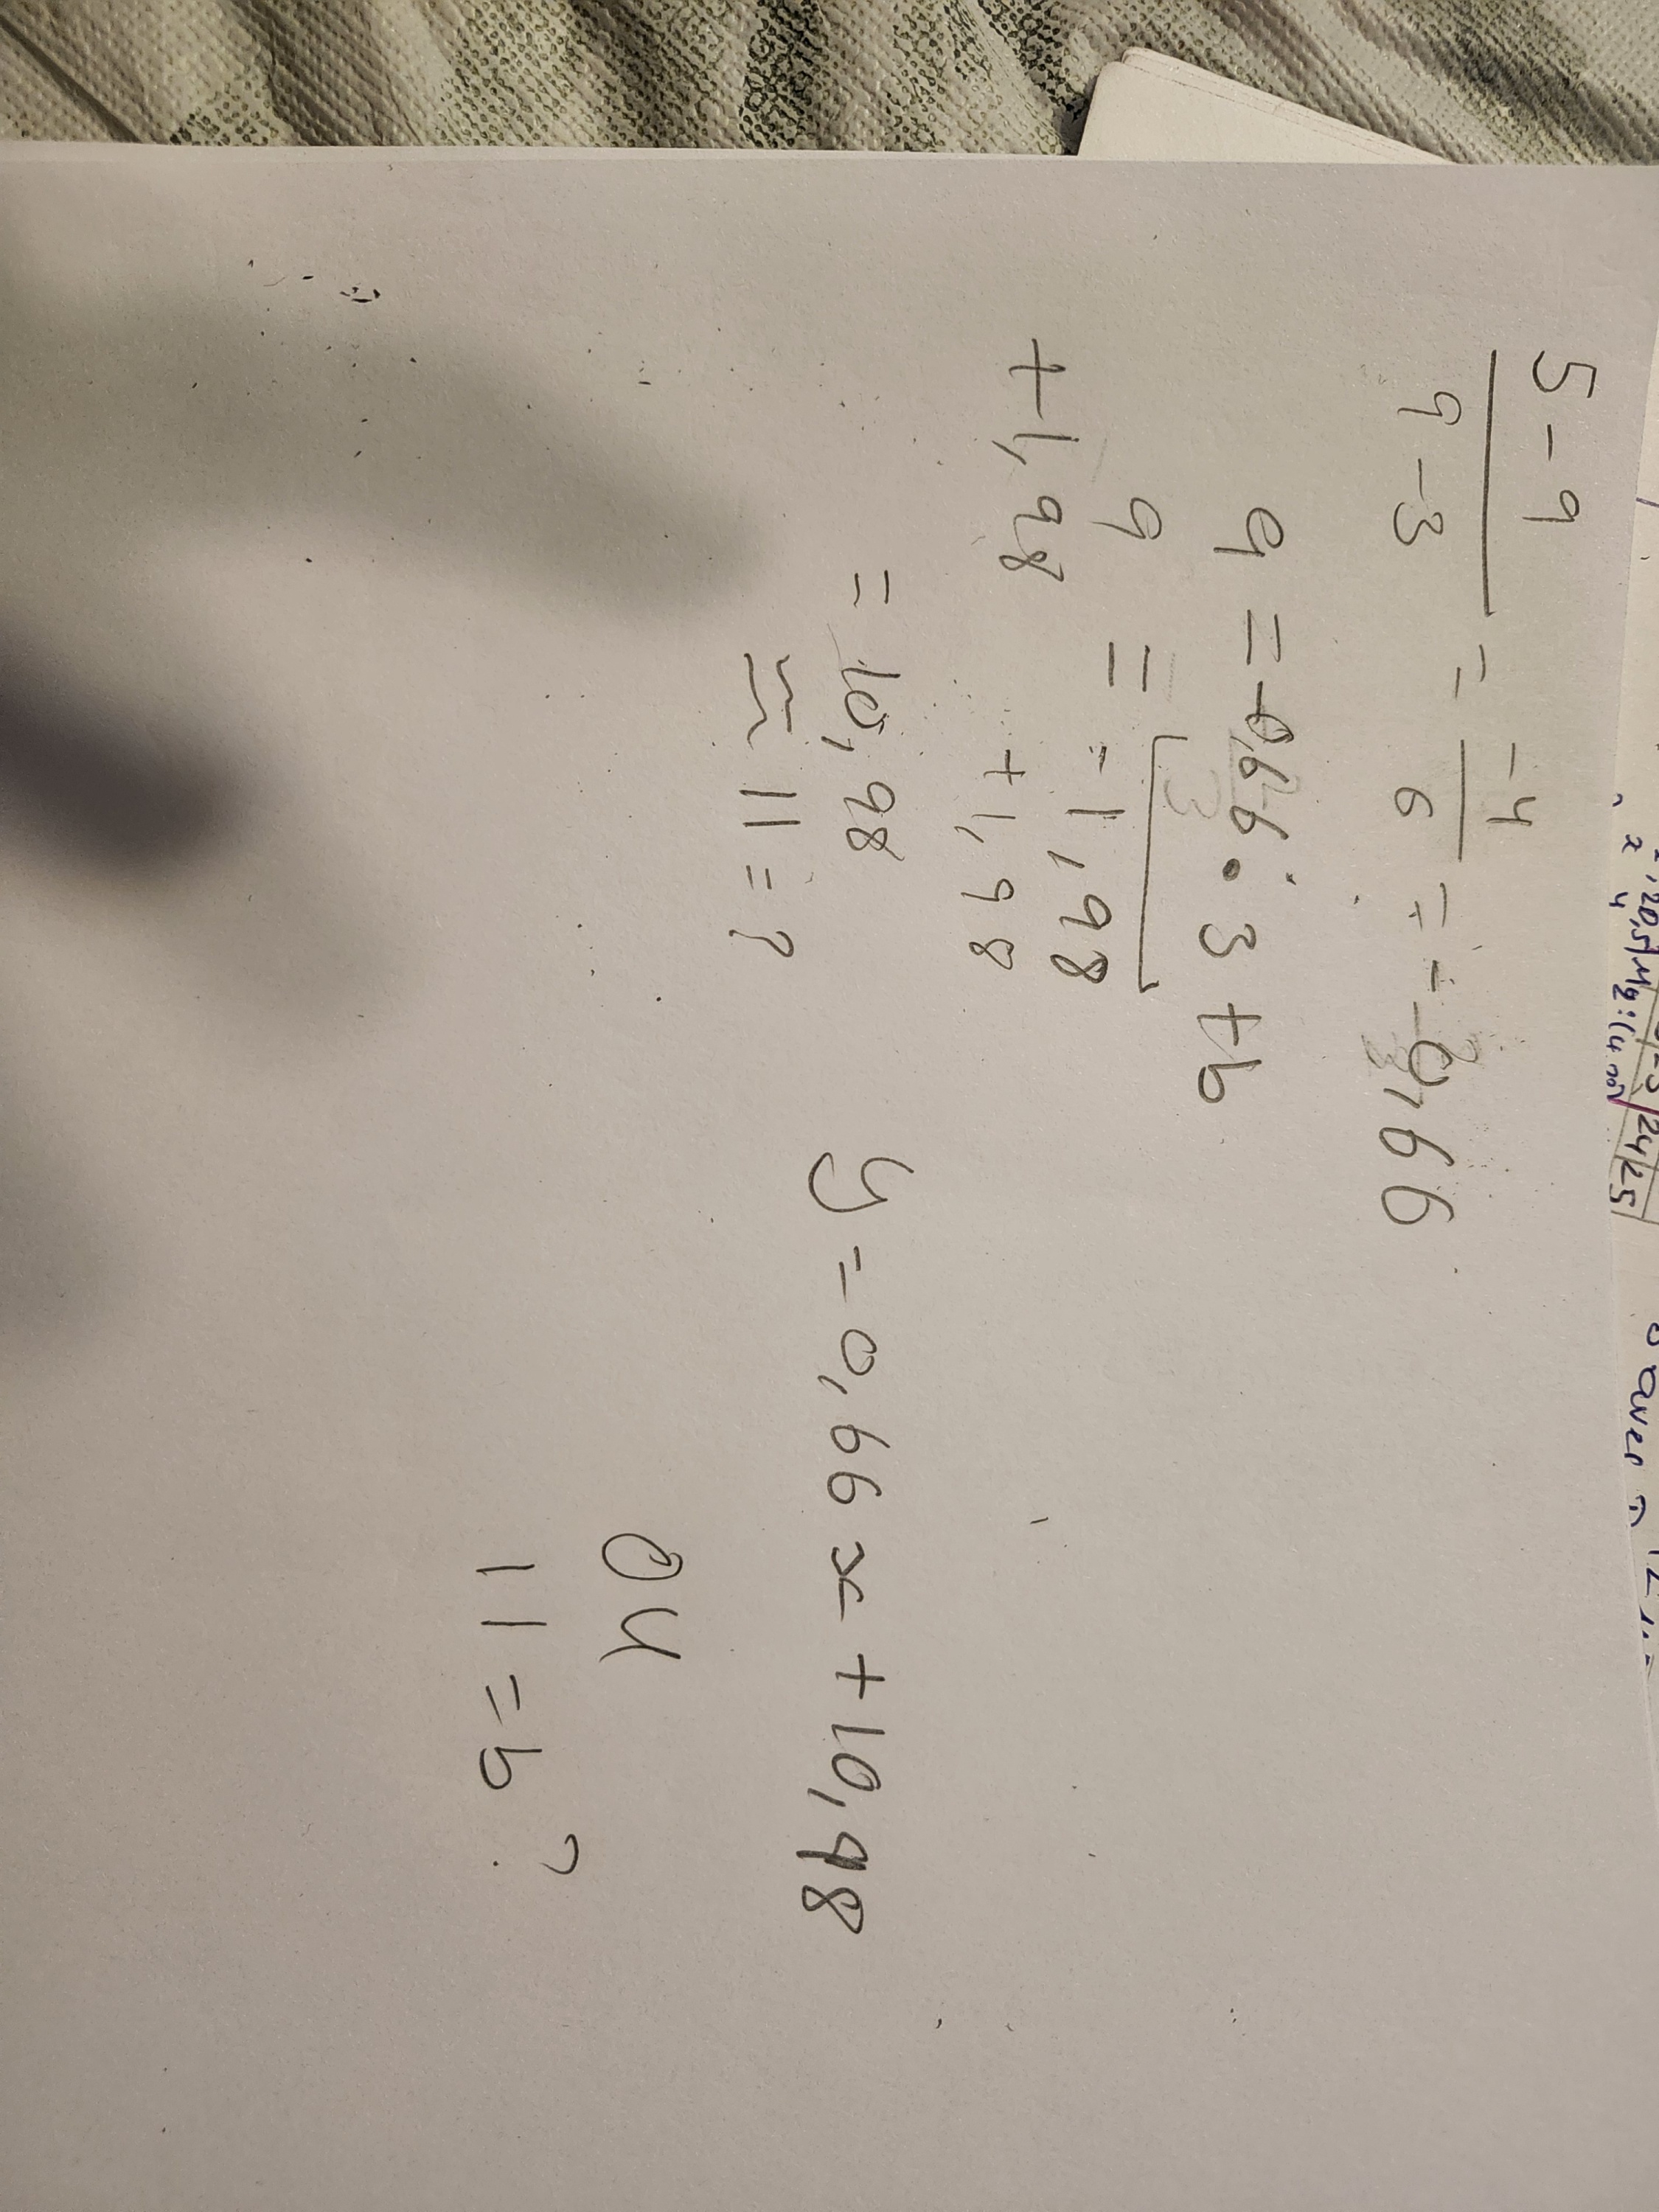 5 - 9
9 - 3
= -4
6
= -0,66
9 = -0,66 • 3 + b
9 = -1,98
+1,98 +1,98
= 10,98
≈ 11 = ?
y = 0,66x + 10,98
OU
11 = b ?